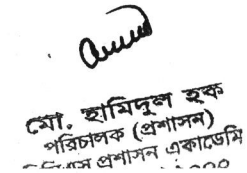 মো. হামিদুল হক
পরিচালক (প্রশাসন)
প্রশাসন একাডেমি